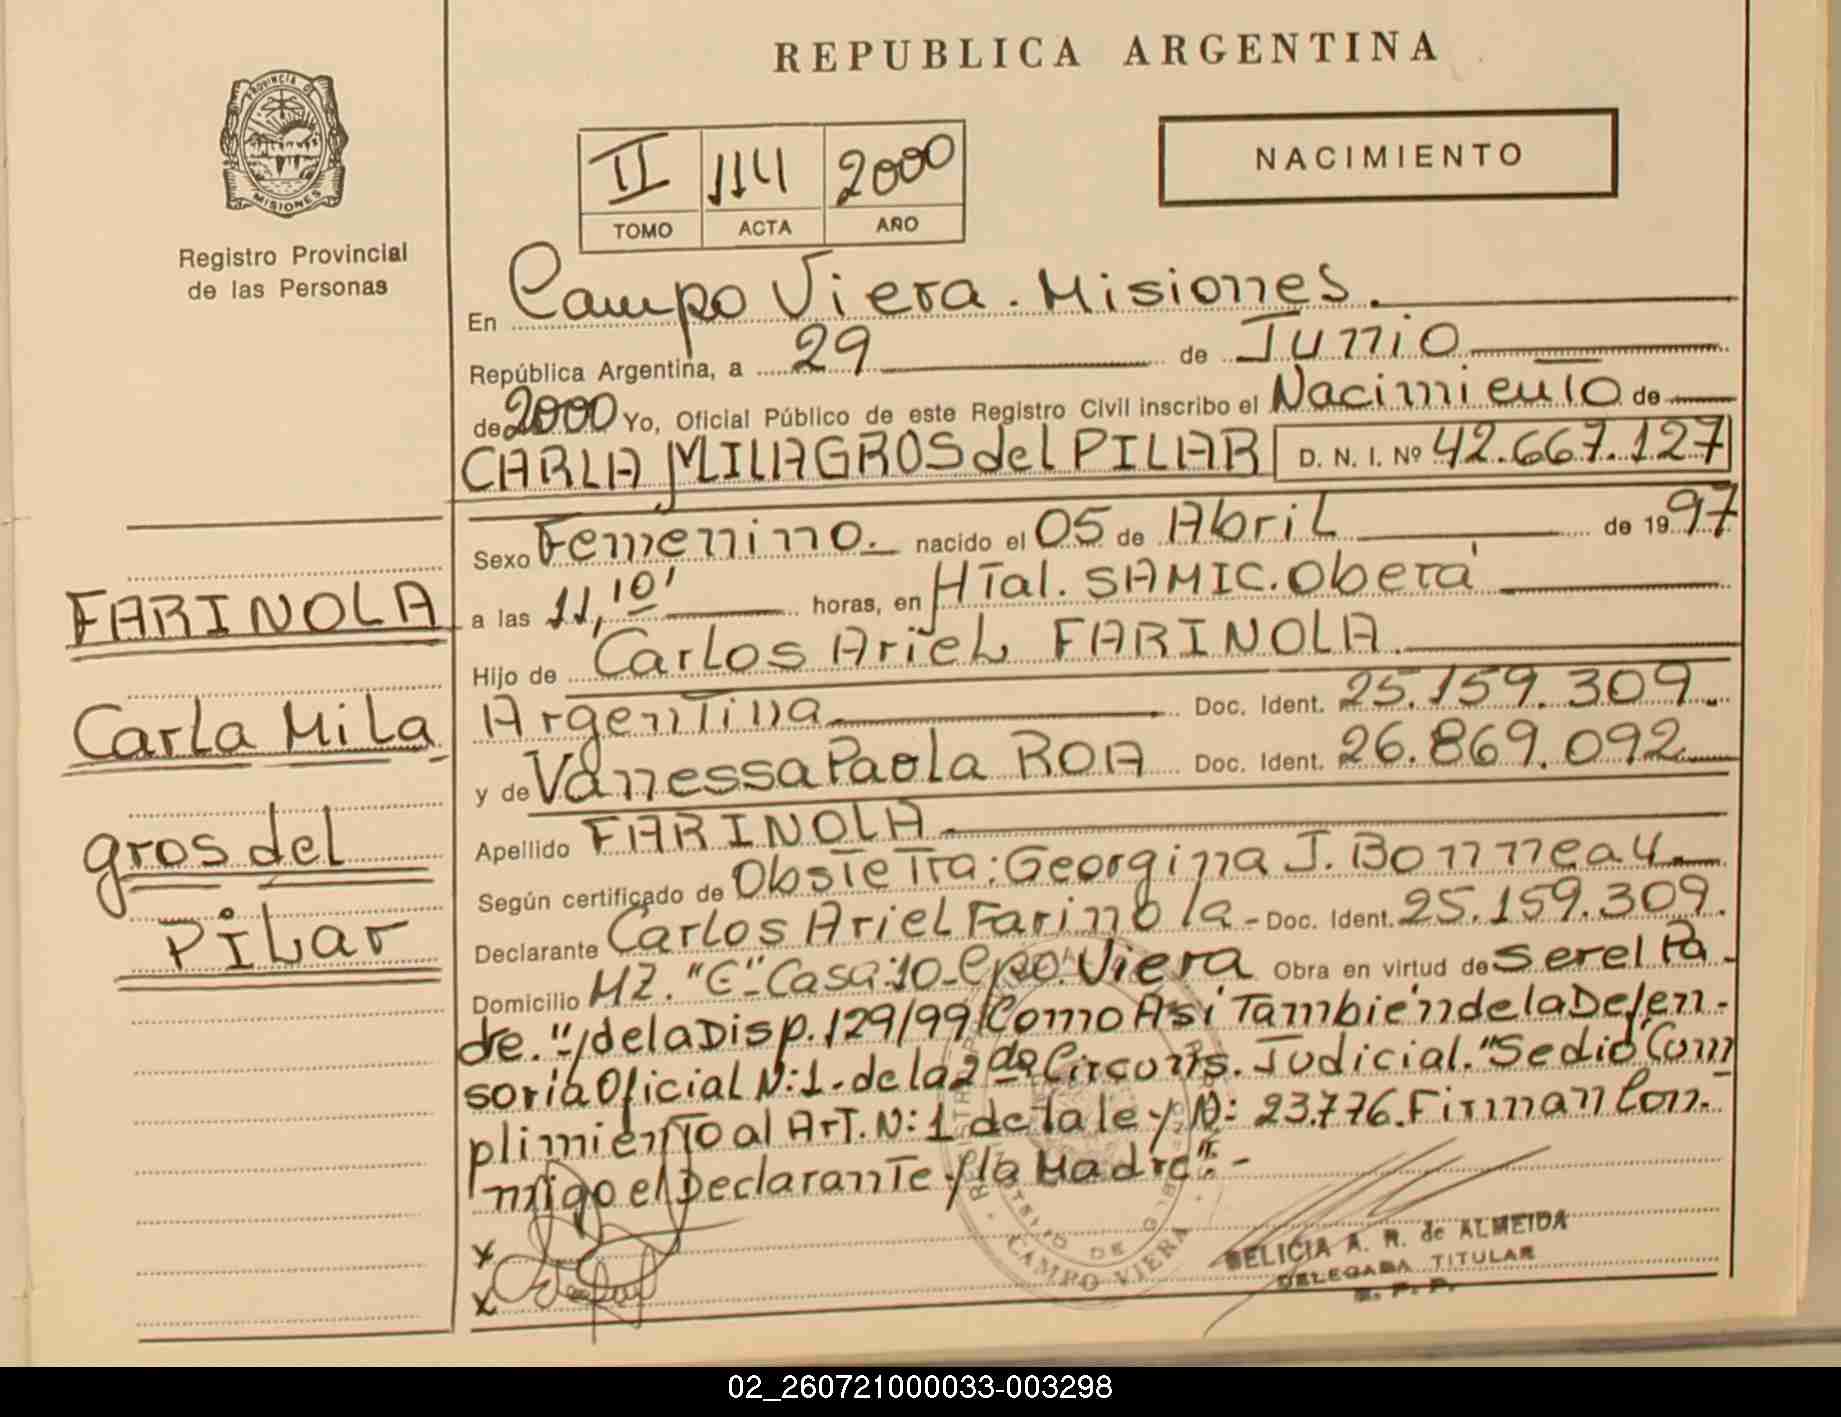 REPUBLICA ARGENTINA
PROVINCIA DE MISIONES
Registro Provincial
de las Personas
II 114 2000
TOMO ACTA AÑO
NACIMIENTO
En Campo Viera. Misiones.
República Argentina, a 29 de Junio
de 2000 Yo, Oficial Público de este Registro Civil inscribo el Nacimiento de
CARLA MILAGROS del PILAR D. N. I. Nº 42.667.127
Sexo Femenino. nacido el 05 de Abril de 1997
a las 11,10' horas, en HTal. SAMIC. Oberá
Hijo de Carlos Ariel FARINOLA.
Argentina Doc. Ident. 25.159.309.
y de Vanessa Paola ROA Doc. Ident. 26.869.092
Apellido FARINOLA
Según certificado de Obstetra: Georgina J. Bonneau.
Declarante Carlos Ariel Farinola - Doc. Ident. 25.159.309.
Domicilio MZ. "C" Casa: 10 - Cpo. Viera Obra en virtud de ser el Pa-
dre."- y de la Disp. 129/99/ Como Así También de la Defen-
soría Oficial N:1- de la 2da Circuns. Judicial. "Se dió Com
plimiento al Art. N:1 de la ley N: 23.776. Firman Con-
migo el Declarante y la Madre".-
FARINOLA
Carla Mila
gros del
Pilar
x
x
CAMPO VIERA
DELICIA A. R. de ALMEIDA
DELEGADA TITULAR
R. P. P.
02_260721000033-003298